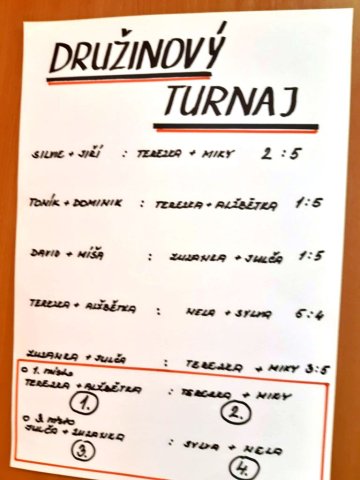 DRUŽINOVÝ
TURNAJ
SILVIE + JIŘÍ : TEREZKA + MIKY 2 : 5
TONÍK + DOMINIK : TEREZKA + ALŽBĚTKA 1 : 5
DAVID + MÍŠA : ZUZANKA + JULČA 1 : 5
TEREZKA + ALŽBĚTKA : NELA + SYLVA 5 : 4
ZUZANKA + JULČA : TEREZKA + MIKY 3:5
o 1. místo
TEREZKA + ALŽBĚTKA : TEREZKA + MIKY
1. 2.
o 3. místo
JULČA + ZUZANKA : SYLVA + NELA
3. 4.